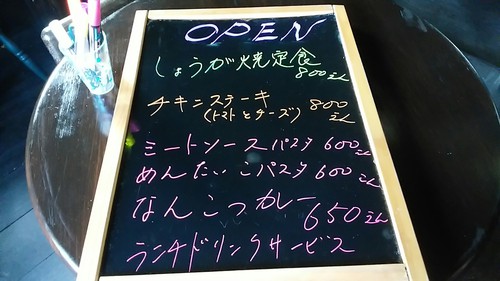 OPEN
しょうが焼定食
800えん
チキンステーキ 800
(トマトとチーズ) えん
ミートソースパスタ 600えん
めんたいこパスタ 600えん
なんこつカレー 650えん
ランチドリンクサービス